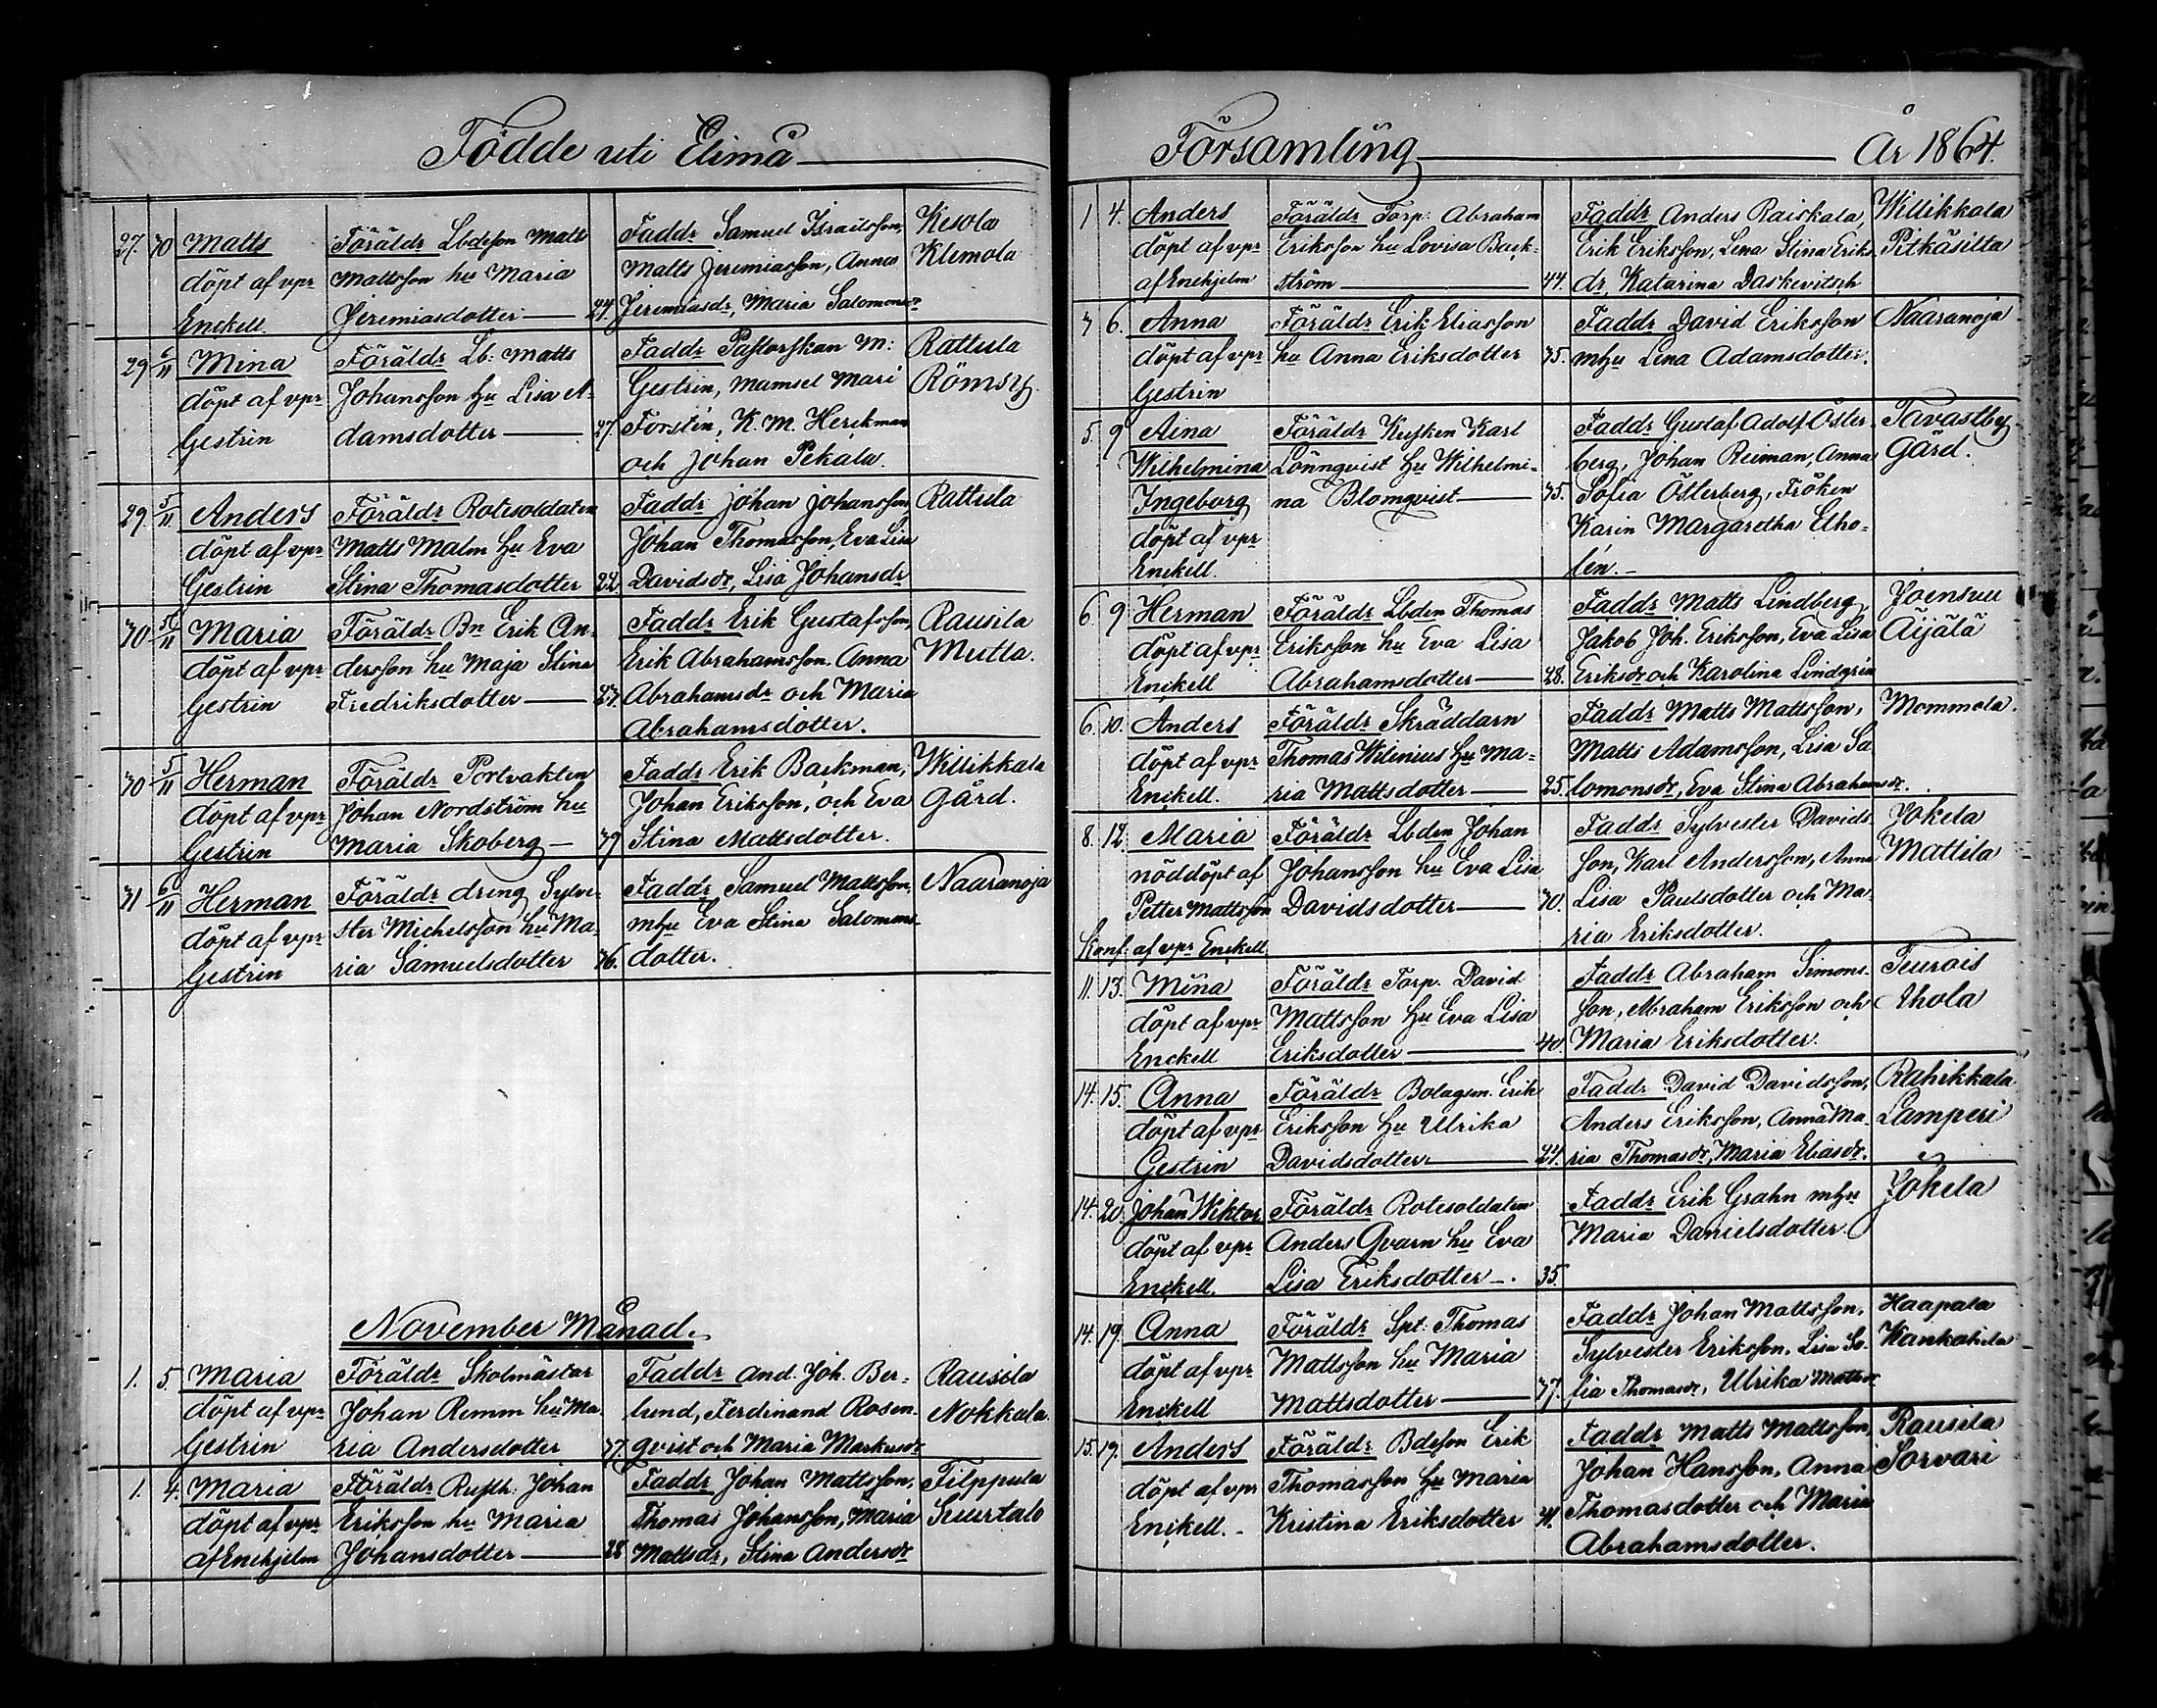 Födde uti Elimä
27. 30 Matts Föräldr Lbdeson Matts Faddr Samuel Israelsson, Kesola
döpt af vpr Mattsson hu Maria Matts Jeremiasson, Anna Klemola
Enckell. Jeremiasdotter 24. Jeremiasdr, Maria Salomonsdr
29 6/11 Mina Föräldr Lb: Matts Faddr Pastorskan M: Rattula
döpt af vpr Johansson hu Lisa A- Gestrin, Mamsel Mari Römsy.
Gestrin damsdotter 27. Forstén, K. M. Herckman
och Johan Pekala.
29. 5/11 Anders Föräldr Rotesoldaten Faddr Johan Johansson Rattula
döpt af vpr Matts Malm hu Eva Johan Thomasson, Eva Lisa
Gestrin Stina Thomasdotter 22. Davidsdr, Lisa Johansdr
30 5/11 Maria Föräldr Bn Erik An- Faddr Erik Gustafsson, Rausila
döpt af vpr dersson hu Maja Stina Erik Abrahamsson, Anna Mutta.
Gestrin Fredriksdotter 27. Abrahamsdr och Maria
Abrahamsdotter.
30 5/11 Herman Föräldr Portvakten Faddr Erik Backman, Willikkala
döpt af vpr Johan Nordström hu Johan Eriksson, och Eva gård.
Gestrin Maria Skoberg 39 Stina Mattsdotter.
31 6/11 Herman Föräldr dreng Sylve- Faddr Samuel Mattsson, Naaranoja
döpt af vpr ster Michelsson hu Ma- mhu Eva Stina Salomons-
Gestrin ria Samuelsdotter 36. dotter.
November Månad.
1. 5. Maria Föräldr Skolmästar Faddr And. Joh. Ber- Rausila
döpt af vpr Johan Remm hu Ma- lund, Ferdinand Rosen- Nokkala.
Gestrin ria Andersdotter 37. qvist och Maria Markusdr
1. 4. Maria Föräldr Rusth: Johan Faddr Johan Mattsson, Filppula
döpt af vpr Eriksson hu Maria Thomas Johansson, Maria Suurtalo
af Enehjelm Johansdotter 28 Mattsdr, Stina Andersdr
Församling År 1864.
1 4. Anders Föräldr Torp: Abraham Faddr Anders Raiskala, Willikkala
döpt af vpr Eriksson hu Lovisa Back- Erik Eriksson, Lena Stina Eriks- Pitkäsilta
af Enehjelm ström 44. dr, Katarina Daskevitsch
3 6. Anna Föräldr Erik Eliasson Faddr David Eriksson Naaranoja
döpt af vpr hu Anna Eriksdotter 35. mhu Lena Adamsdotter.
Gestrin
5. 9 Aina Föräldr Kusken Karl Faddr Gustaf Adolf Öster- Tavastby
Wilhelmina Lönnqvist hu Wilhelmi- berg, Johan Reiman, Anna gård.
Ingeborg na Blomqvist 35. Sofia Österberg, Fröken
döpt af vpr Karin Margaretha Etho-
Enckell. lén.
6. 9 Herman Föräldr Lbden Thomas Faddr Matts Lindberg, Joensuu
döpt af vpr Eriksson hu Eva Lisa Jakob Joh. Eriksson, Eva Lisa Äijälä
Enckell Abrahamsdotter 28. Eriksdr och Karolina Lindgrén
6. 10. Anders Föräldr Skräddarn Faddr Matts Mattsson, Mommola.
döpt af vpr Thomas Wilenius hu Ma- Matts Adamsson, Lisa Sa-
Enckell. ria Mattsdotter 25. lomonsdr, Eva Stina Abrahamsdr.
8. 12. Maria Föräldr Lbden Johan Faddr Sylvester Davids- Jokela
nöddöpt af Johansson hu Eva Lisa son, Karl Andersson, Anna Mattila
Petter Mattsson Davidsdotter 30. Lisa Paulsdotter och Ma-
Konf. af vpr Enckell ria Eriksdotter.
11. 13. Mina Föräldr Torp. David Faddr Abraham Simons- Teurois
döpt af vpr Mattsson hu Eva Lisa son, Abraham Eriksson och Ahola
Enckell Eriksdotter 40 Maria Eriksdotter.
14. 15. Anna Föräldr Bolagsm. Erik Faddr David Davidsson, Rahikkala
döpt af vpr Eriksson hu Ulrika Anders Eriksson, Anna Ma- Lamperi
Gestrin Davidsdotter 24. ria Thomasdr, Maria Eliasdr.
14. 20. Johan Wiktor Föräldr Rotesoldaten Faddr Erik Grahn mhu Jokela
döpt af vpr Anders Qvarn hu Eva Maria Danielsdotter.
Enckell. Lisa Eriksdotter. 35.
14. 19. Anna Föräldr Spt: Thomas Faddr Johan Mattsson, Haapala
döpt af vpr Mattsson hu Maria Sylvester Eriksson, Lisa So- Kankahila
Enckell Mattsdotter 37. fia Thomasdr, Ulrika Mattsdr
15. 19. Anders Föräldr Bdeson Erik Faddr Matts Mattsson, Rausila
döpt af vpr Thomasson hu Maria Johan Hansson, Anna Sorvari
Enckell. Kristina Eriksdotter 31. Thomasdotter och Maria
Abrahamsdotter.